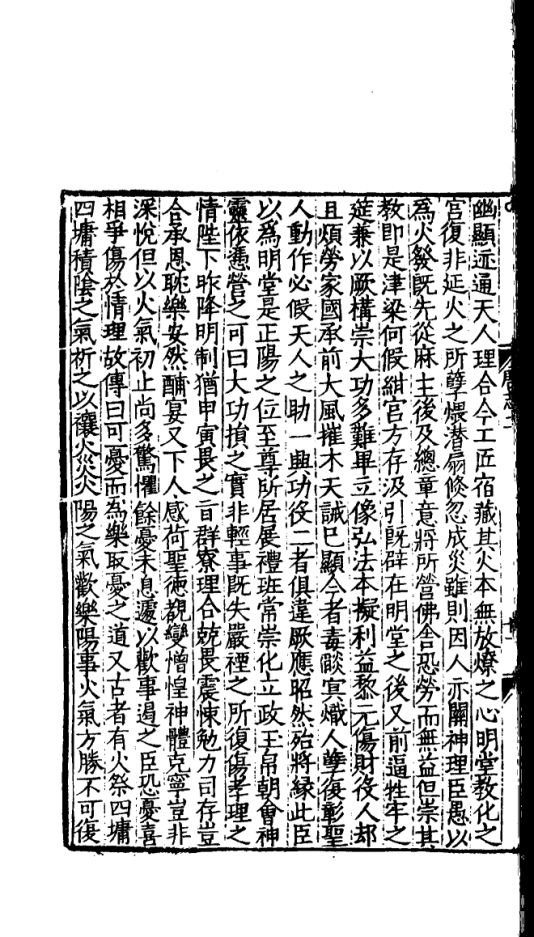 幽顯迹通天人理合今工匠宿藏其火本無放燎之心明堂敎化之
宫復非延火之所孽煨潜扇倏忽成災雖則因人亦關神理臣愚以
為火發旣先從麻主後及總章意將所營佛舎恐勞而無益但崇其
敎即是津梁何假紺宫方存汲引旣辟在明堂之後又前逼牲牢之
筵兼以厥構崇大功多難畢立像弘法本擬利益黎元傷財役人却
且煩勞家國承前大風摧木天誡已顯今者毒燄㝠熾人孽復彰聖
人動作必假天人之助一興功役二者俱違厥應昭然殆將縁此臣
以為明堂是正陽之位至尊所居展禮班常崇化立政玉帛朝會神
靈依慿營之可曰大功損之實非輕事旣失嚴禋之所復傷孝理之
情陛下昨降明制猶申寅畏之㫖群寮理合兢畏震悚勉力司存豈
合承恩耽樂安然酺宴又下人感荷聖徳覩變憎惶神體克寧豈非
深悅但以火氣初止尚多驚懼餘憂未息遽以歡事遏之臣恐憂喜
相爭傷於情理故傳曰可憂而為樂取憂之道又古者有火祭四墉
四墉積隂之氣祈之以禳火災火陽之氣歡樂陽事火氣方勝不可復